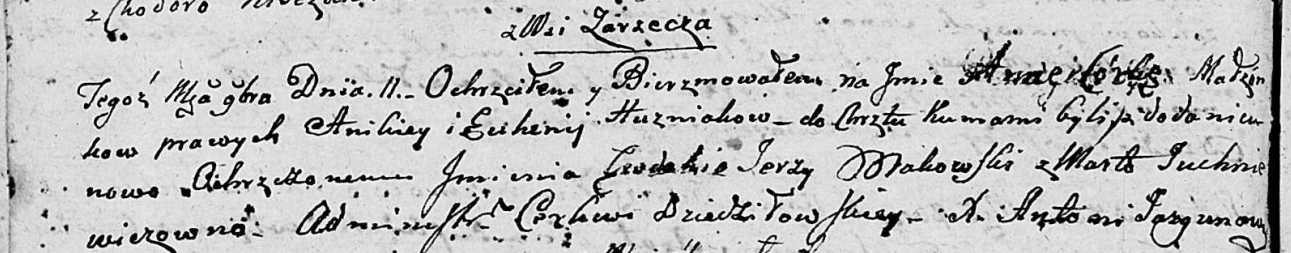 z Chodoro
z Wsi Zarzecza
Tegoż Mca 9bra Dnia. 11. Ochrzciłem y Bierzmowałem na Jmie Annę Córkę Małżon
kow prawych Anikiey i Euhenij Huzniakow do Chrztu Kumami byli z dodaniem
nowo Ochrzczonemu Jmienia Jerzy Makowski z Martą Juchnie
wiczowną. Administr Cerkwi Dziedziłowskiey X. Antoni Jazgunowicz